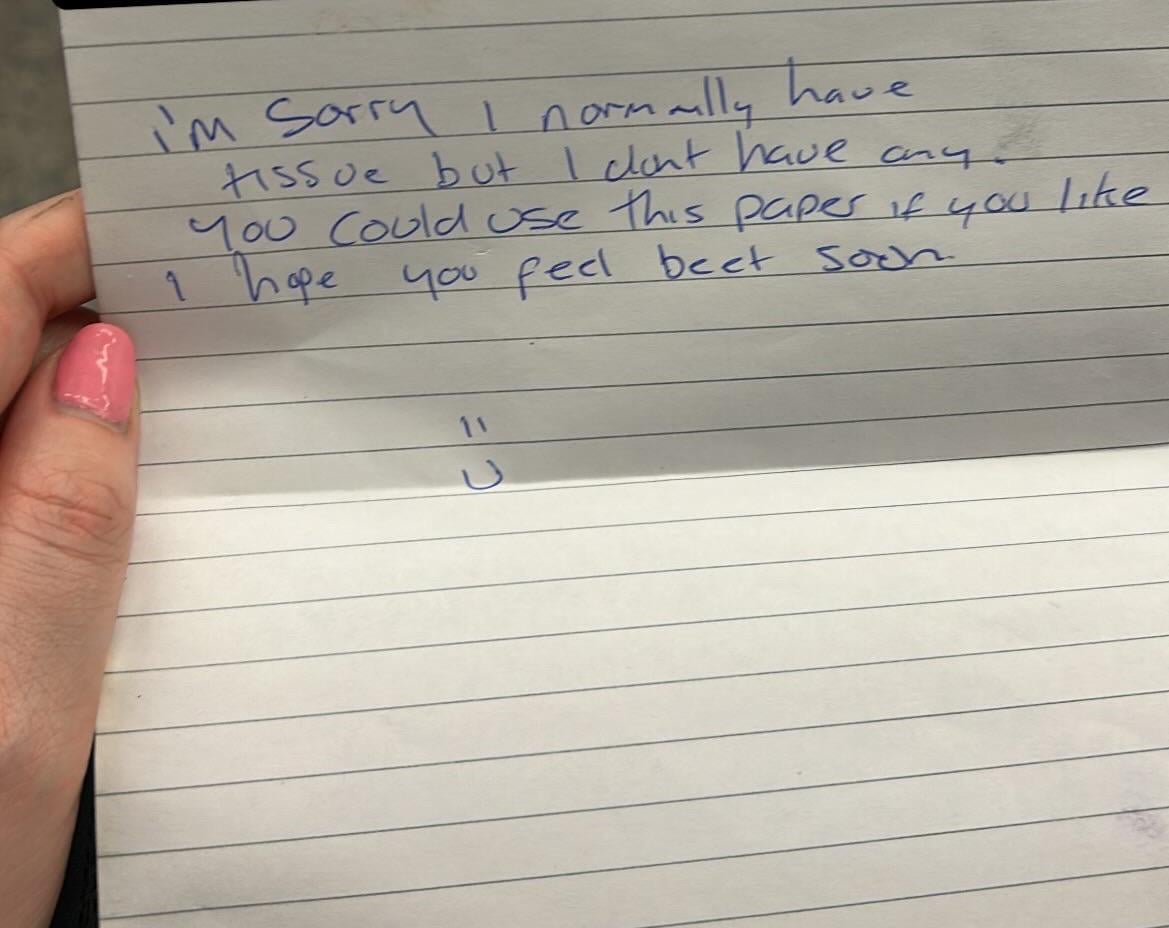 i'm Sorry I normally have
tissue but I dont have any.
you could use this paper if you like
I hope you feel beet soon